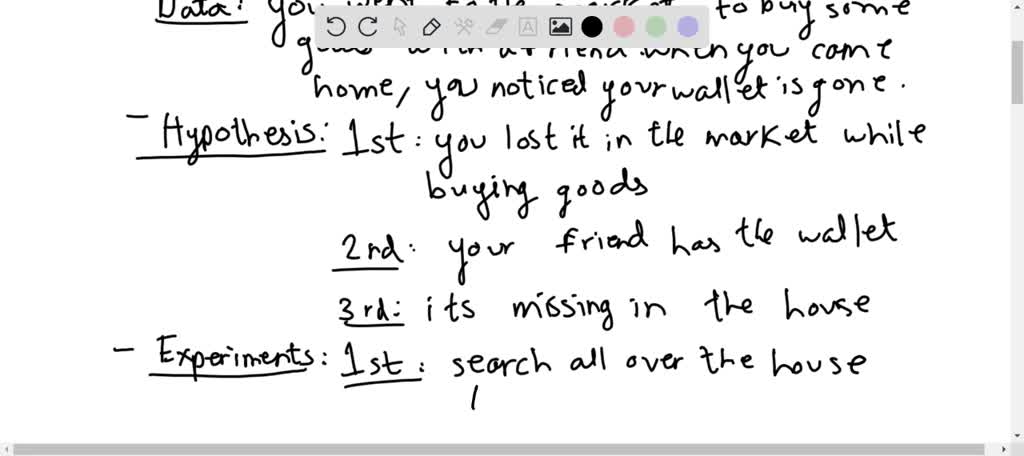 Data: you to buy some
with a friend when you come
home, you noticed your wallet is gone.
- Hypothesis: 1st: you lost it in the market while
buying goods
2rd: your friend has the wallet
3rd: its missing in the house
- Experiments: 1st: search all over the house